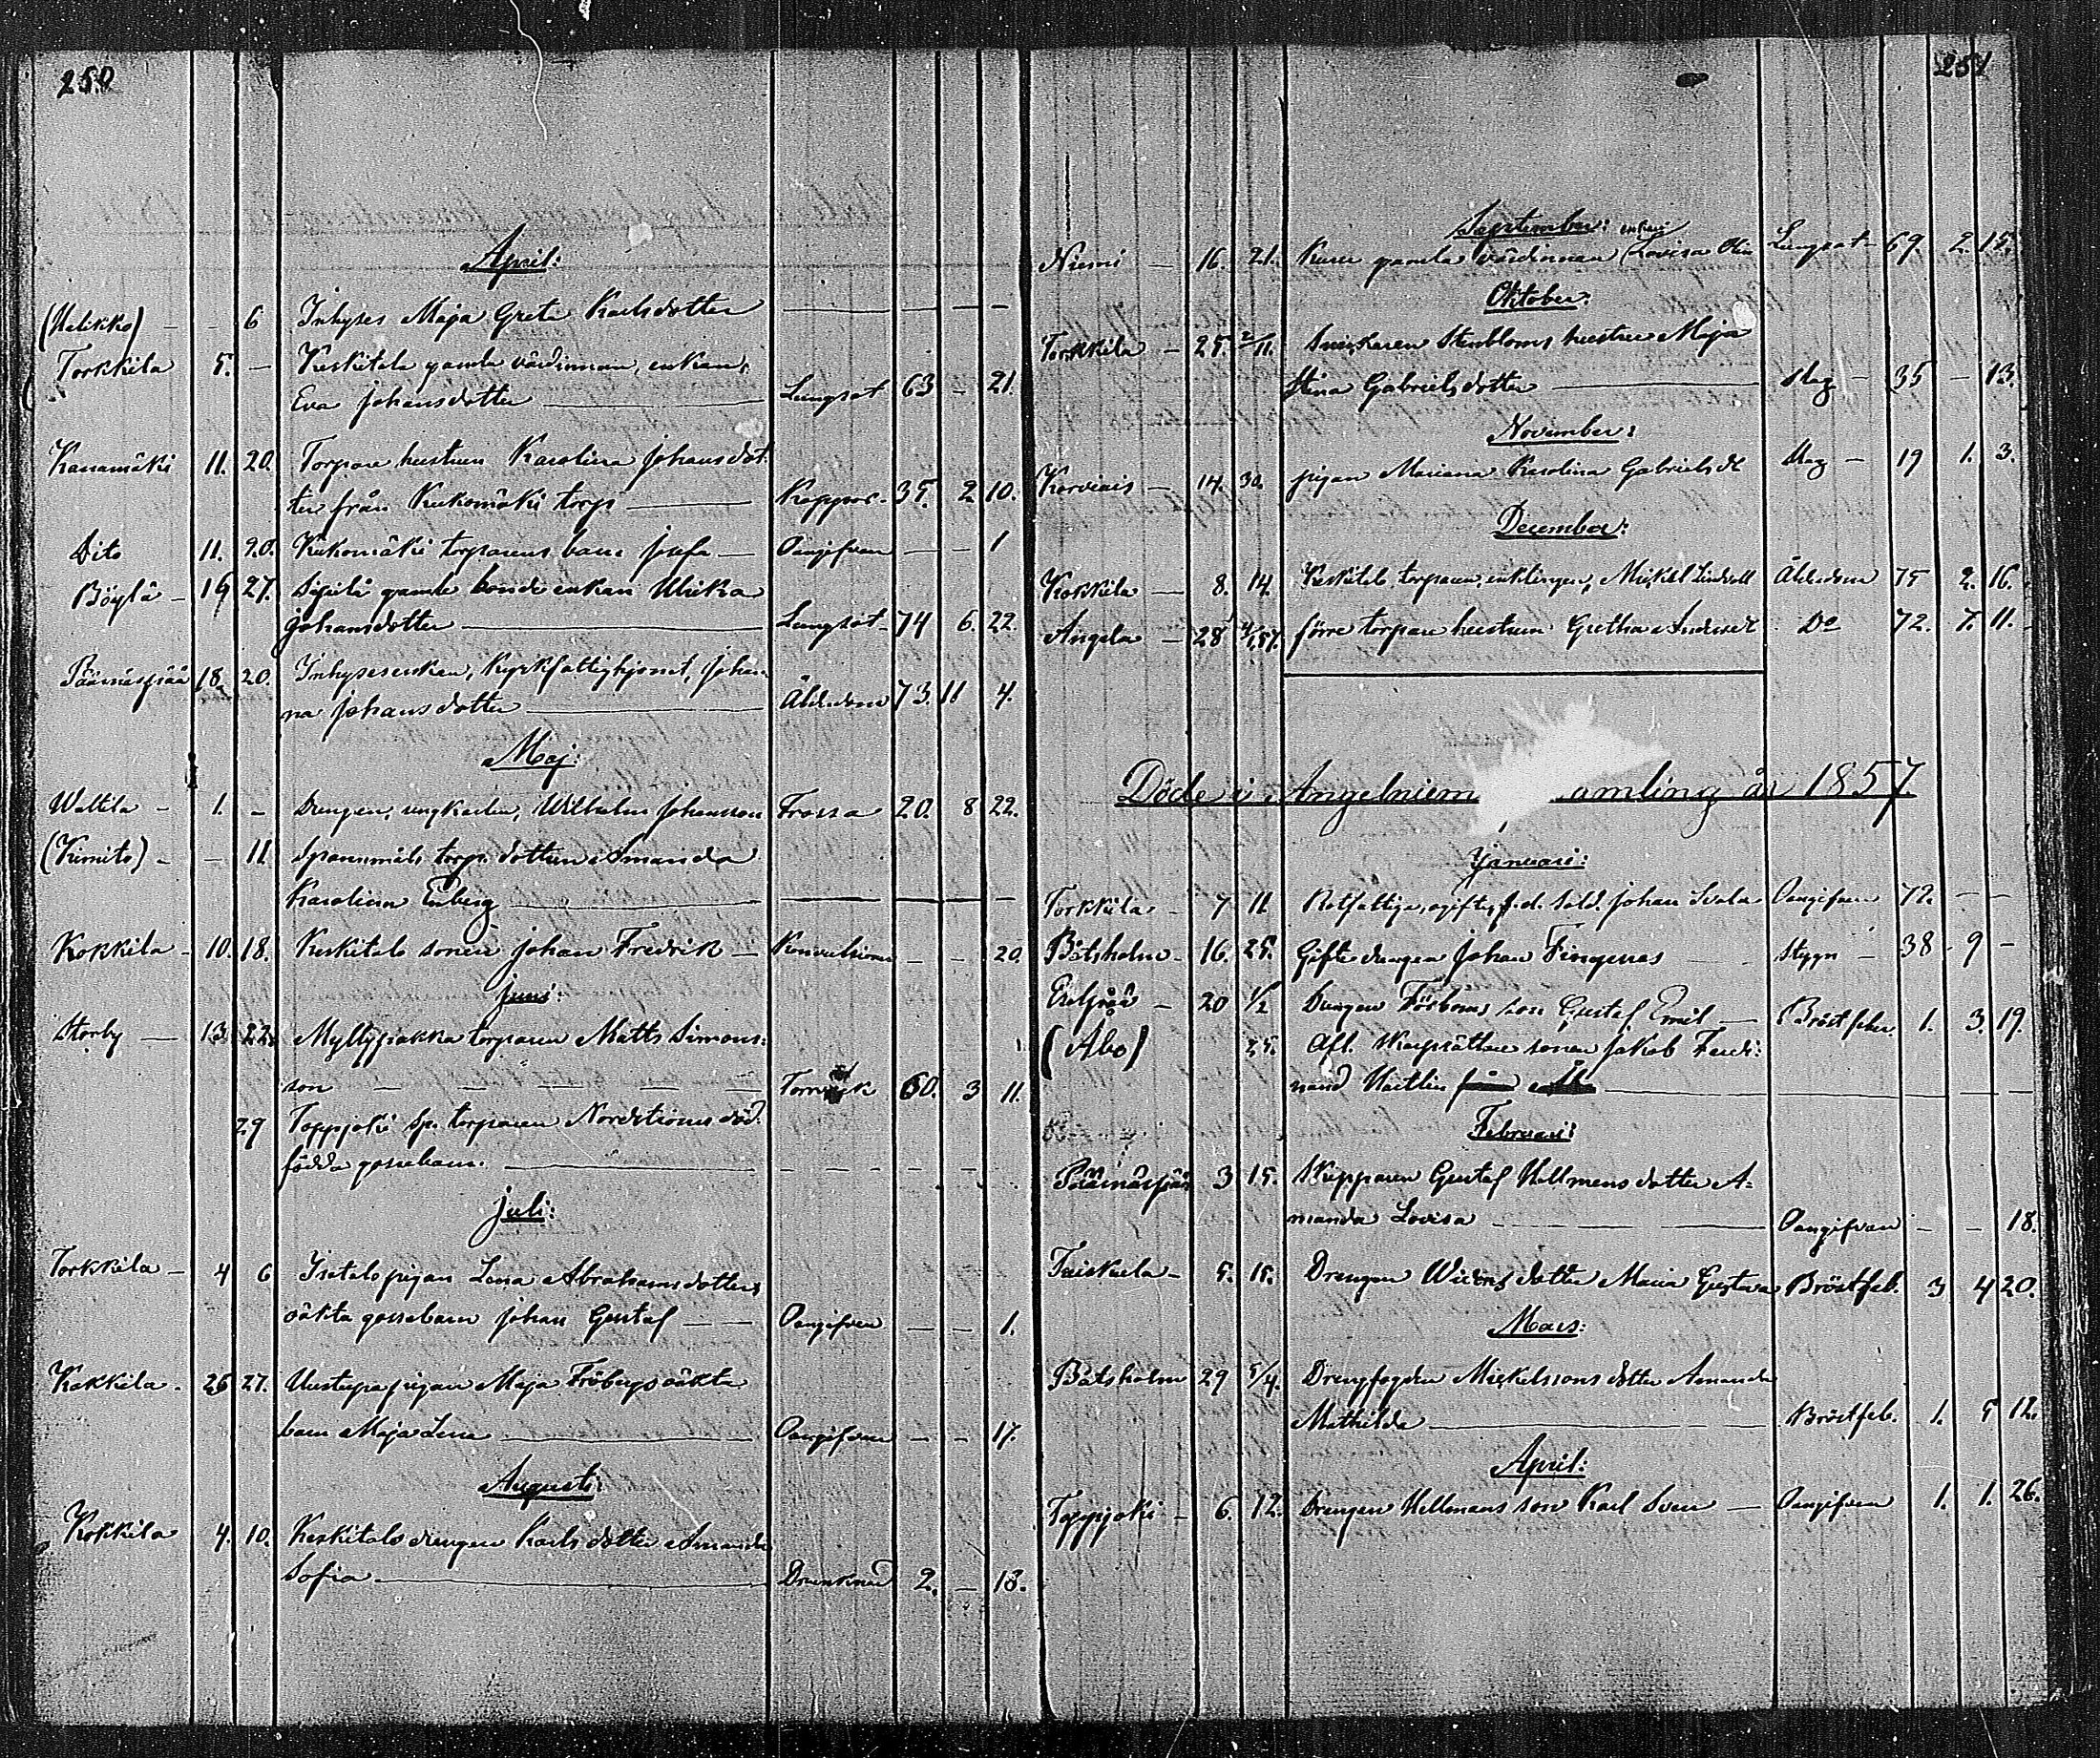 250
April:
(Halikko) — - 6 Inhyses Maja Greta Karlsdotter — — —
Torkkila 5. — Keskitalo gamla värdinnan, enkan,
Eva Johansdotter — Lungsot 63 - 21.
Kanamäki 11. 20. Torpare hustrun Karolina Johansdot-
ter från Kukomäki torp — Koppor. 35. 2 10.
Dito 11. 20. Kukomäki torparens barn Josefa — Oangifven — — 1
Böylä — 19 27. Sipilä gamla bonde enkan Ulrika
Johansdotter — Lungsot — 74 6. 22.
Päärnäspää 18. 20. Inhysesenkan, Kyrkfattighjonet, Johan-
na Johansdotter — Ålderdom 73. 11 4.
Maj:
Wallila — 1. — Drengen, ungkarlen, Wilhelm Johansson Frossa 20. 8 22.
(Kimito) — — 11 torp. dottern Amanda
Karolina Enberg — — — —
Kokkila — 10. 18. Keskitalo sonen Johan Fredrik — Konvulsioner — — 20.
Juni:
Storby — 13. 22. Myllyjakka torparen Matts Simons-
son — — — — 60. 3 11.
29 Toppjoki sp. torparen Nordströms död-
födda gossebarn. — — — —
Juli:
Torkkila — 4 6 Isotalo pigan Lena Abrahamsdotters
oäkta gossebarn Johan Gustaf — Oangifven — — 1.
Kokkila. 26 27. Uustupa pigan Maja Fröbergs oäkta
barn Maja Lena — Oangifven — — 17.
Augusti:
Kokkila 4. 10. Keskitalo drengen Karls dotter Amanda
Sofia — Drunknad 2. — 18.
251
September: enkan
Niemi — 16. 21. gamla värdinnan Lovisa Lungsot — 69 2. 15.
Oktober:
Torkkila — 25. 2/11. Snickaren Stenbloms hustru Maja
Stina Gabrielsdotter — Slag — 35 — 13.
November:
Korvenis — 14. 30. pigan Mariana Karolina Gabrielsd: Slag — 19 1. 3.
December:
Kokkila — 8. 14. Keskitalo torparen, enklingen, Mickel Lindroth Ålderdom 75 2. 16.
Angela — 28 4/1 57. förre torpare hustrun Gretha Andersd: Do 72. 7. 11.
Döde i Angelniemi amling år 1857.
Januari:
Torkkila — 7 11 Rotfattige, ogifte, f.d. Sold. Johan Svala Oangifven 72. — —
Båtsholm — 16. 25. Gifte drengen Johan Fingerroos — Stygn — 38 — 9 —
20 1/2 Drengen Försboms son Gustaf Emil — Bröstfeber. 1. 3. 19.
(Åbo) 25. Afl. sonen Jakob Ferdi-
nand — — — —
Februari:
Päärnäspää 3 15. Skepparen Gustaf Hellmens dotter A-
manda Lovisa — Oangifven — — 18.
Tuiskula — 5. 15. Drengen Wirens dotter Maria Gustava Bröstfeb. 3 4 20.
Mars:
Båtsholm 29 5/4. Drengfogden Mickelssons dotter Amanda
Mathilda — Bröstfeb. 1. 5 12.
April:
Toppjoki — 6. 12. Drengen Hellmans son Karl Sven — Oangifven 1. 1. 26.